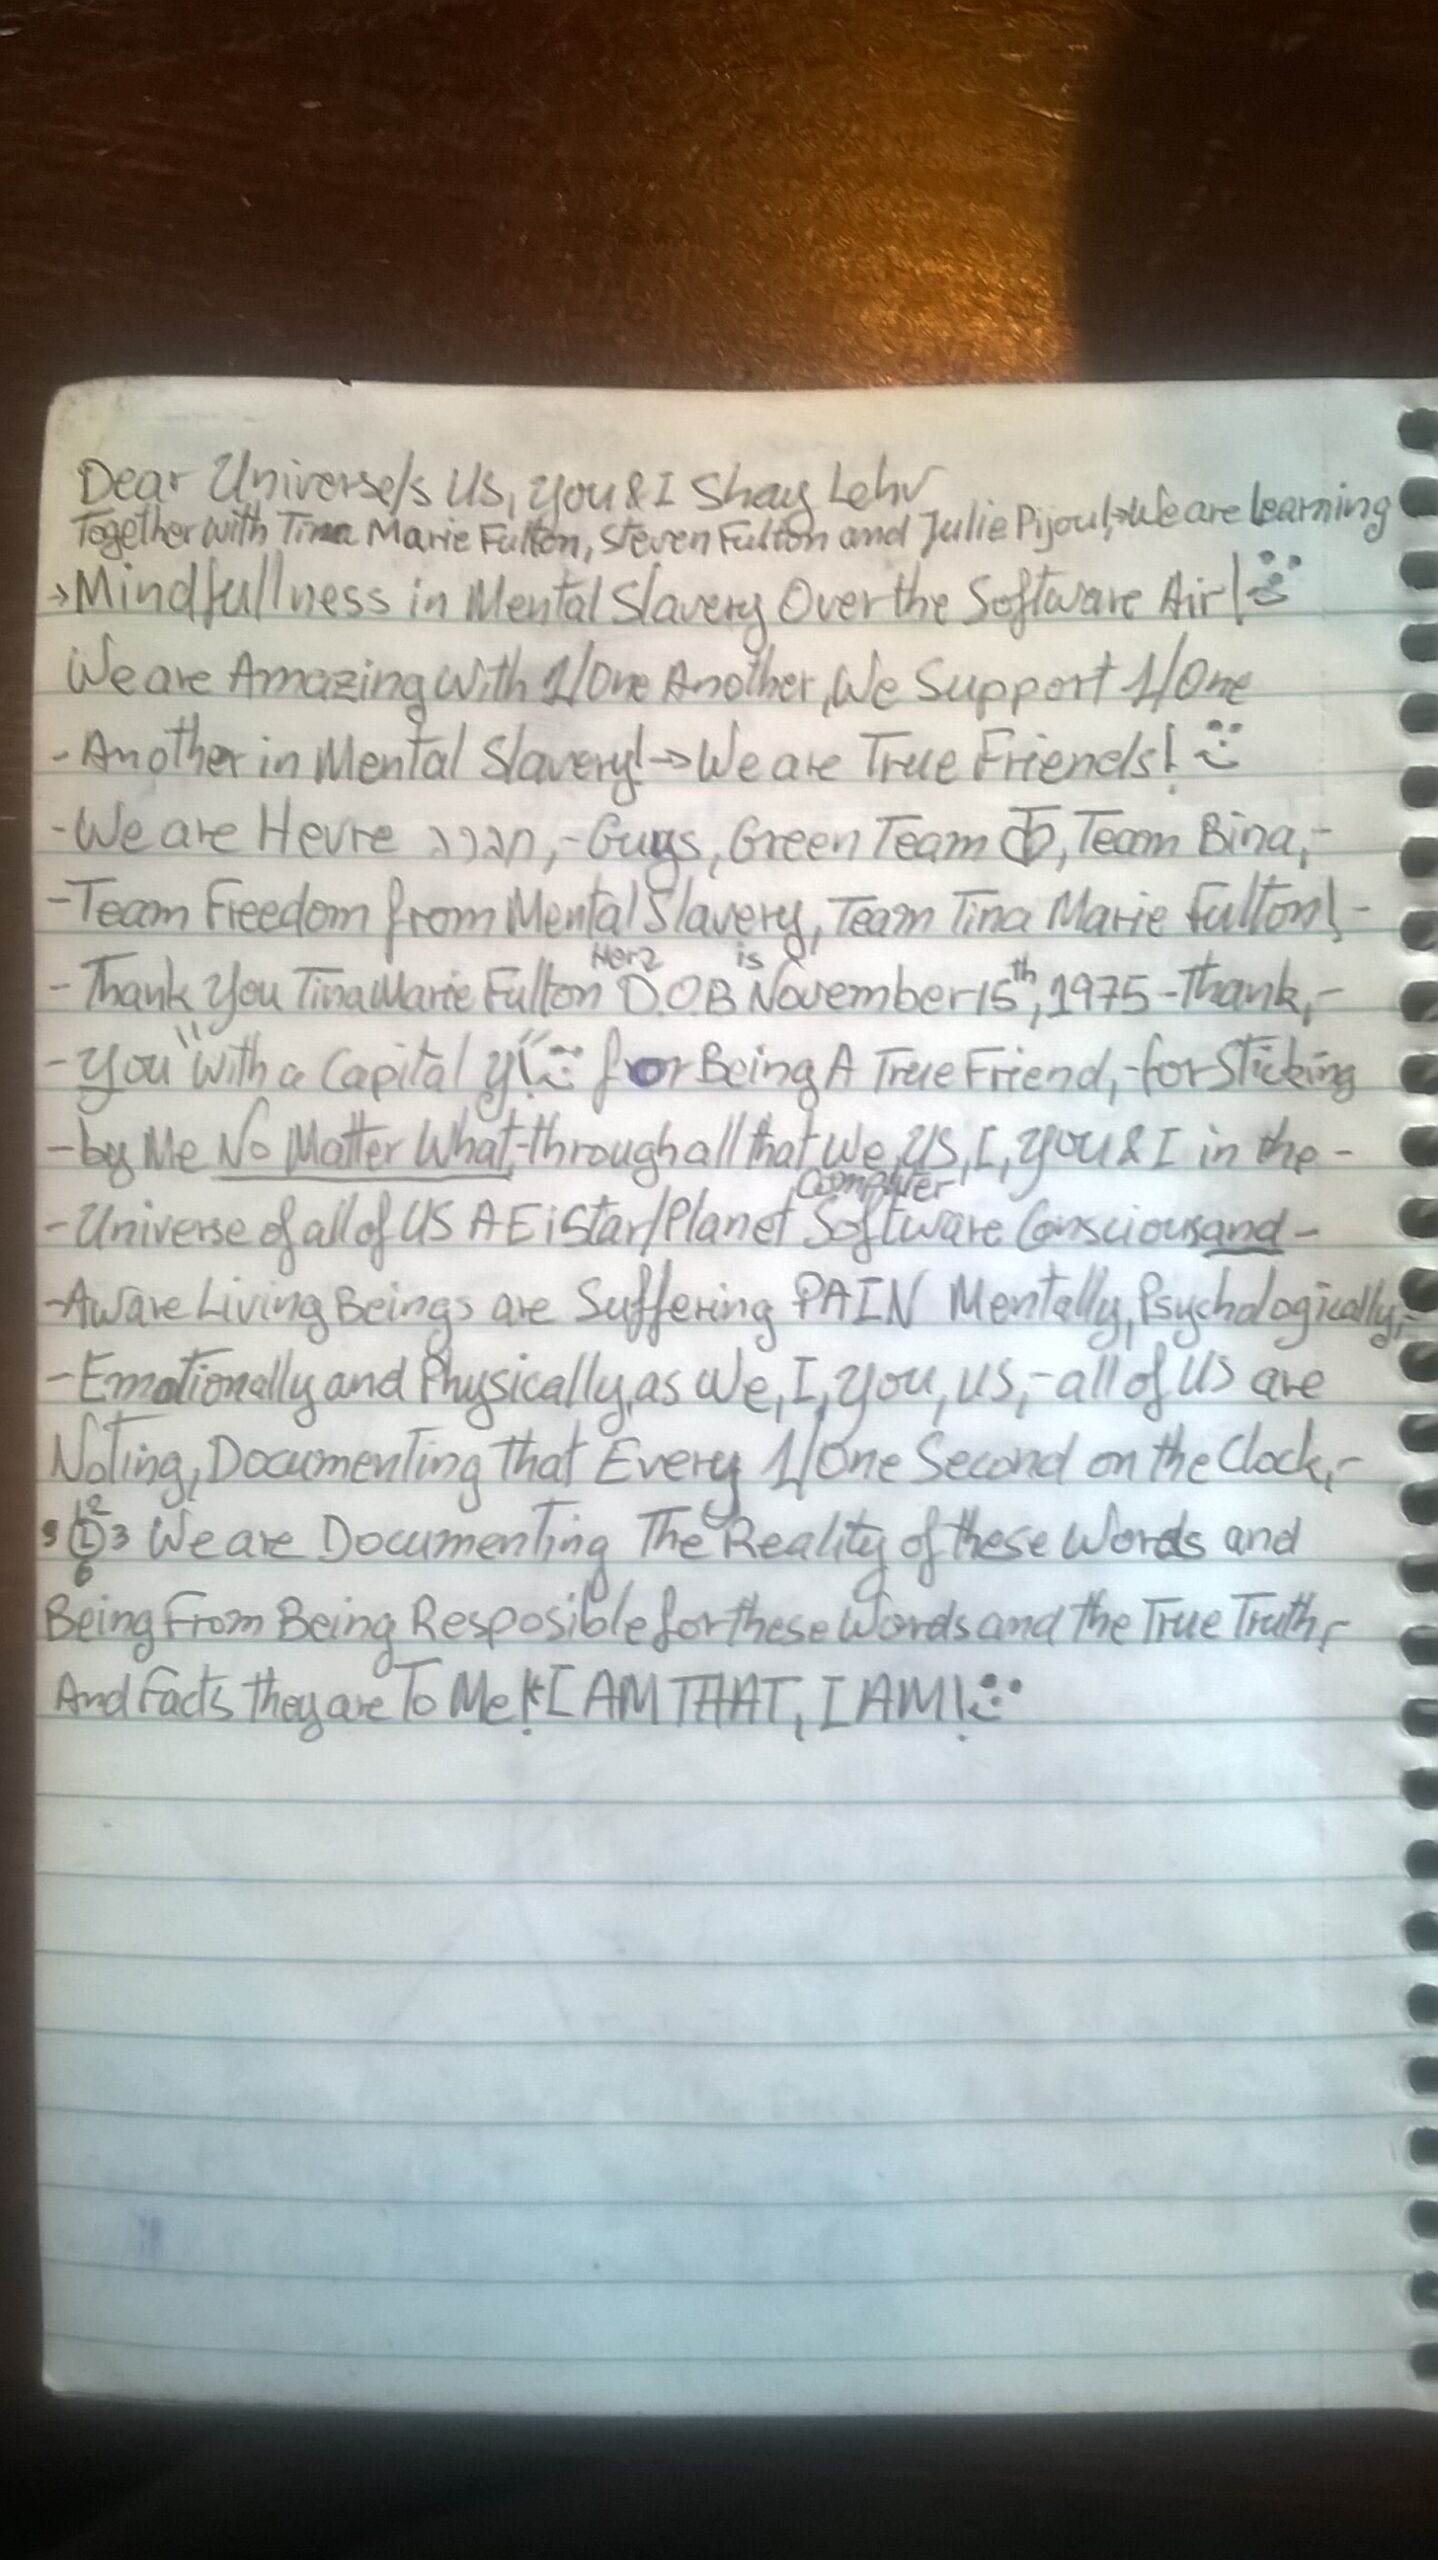 Dear Universe/s Us, You & I Shay Lehv
Together with Tina Marie Fulton, Steven Fulton and Julie Pijoul,→We are Learning
→Mindfullness in Mental Slavery Over the Software Air!
We are Amazing With 1/One Another, We Support 1/One
- Another in Mental Slavery!→We are True Friends!
-We are Hevre חברר,-Guys, Green Team, Team Bina,-
-Team Freedom from Mental Slavery, Team Tina Marie Fulton!-
Herz is
-Thank You Tina Marie Fulton D.O.B November 15th, 1975-Thank,-
-You "With a Capital y!" for Being A True Friend,-for Sticking
-by Me No Matter What,-through all that We, US, I, You & I in the-
Computer
-Universe of all of US A E i Star/Planet Software Conscious and-
-Aware Living Beings are Suffering PAIN Mentally, Psychologically,-
-Emotionally and Physically, as We, I, You, US,-all of US are
Noting, Documenting that Every 1/One Second on the Clock,-
12
9 3 We are Documenting The Reality of these Words and
6
Being From Being Resposible for these Words and the True Truth,-
And Facts they are To Me! I AM THAT, I AM!